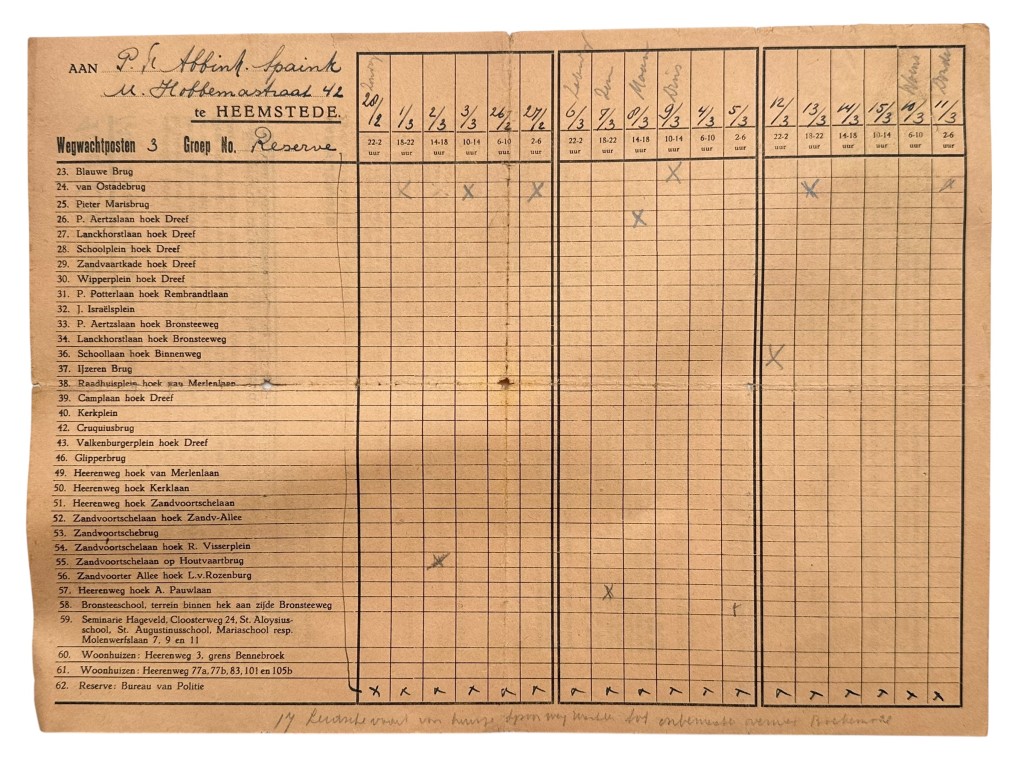 AAN P. Abbink. Spaink
M. Hobbemastraat 42
te HEEMSTEDE.
Wegwachtposten 3 Groep No. Reserve
28/2 1/3 2/3 3/3 26/2 27/2 6/3 7/3 8/3 9/3 4/3 5/3 12/3 13/3 14/3 15/3 10/3 11/3
22-2 uur 18-22 uur 14-18 uur 10-14 uur 6-10 uur 2-6 uur 22-2 uur 18-22 uur 14-18 uur 10-14 uur 6-10 uur 2-6 uur 22-2 uur 18-22 uur 14-18 uur 10-14 uur 6-10 uur 2-6 uur
23. Blauwe Brug
24. van Ostadebrug
25. Pieter Marisbrug
26. P. Aertzslaan hoek Dreef
27. Lanckhorstlaan hoek Dreef
28. Schoolplein hoek Dreef
29. Zandvaartkade hoek Dreef
30. Wipperplein hoek Dreef
31. P. Potterlaan hoek Rembrandtlaan
32. J. Israëlsplein
33. P. Aertzslaan hoek Bronsteeweg
34. Lanckhorstlaan hoek Bronsteeweg
36. Schoollaan hoek Binnenweg
37. IJzeren Brug
38. Raadhuisplein hoek van Merlenlaan
39. Camplaan hoek Dreef
40. Kerkplein
42. Cruquiusbrug
43. Valkenburgerplein hoek Dreef
46. Glipperbrug
49. Heerenweg hoek van Merlenlaan
50. Heerenweg hoek Kerklaan
51. Heerenweg hoek Zandvoortschelaan
52. Zandvoortschelaan hoek Zandv-Allee
53. Zandvoortschebrug
54. Zandvoortschelaan hoek R. Visserplein
55. Zandvoortschelaan op Houtvaartbrug
56. Zandvoorter Allee hoek L.v.Rozenburg
57. Heerenweg hoek A. Pauwlaan
58. Bronsteeschool, terrein binnen hek aan zijde Bronsteeweg
59. Seminarie Hageveld, Cloosterweg 24, St. Aloysius-
school, St. Augustinusschool, Mariaschool resp.
Molenwerfslaan 7, 9 en 11
60. Woonhuizen: Heerenweg 3, grens Bennebroek
61. Woonhuizen: Heerenweg 77a, 77b, 83, 101 en 105b
62. Reserve: Bureau van Politie
17 Leidschevaart van tot